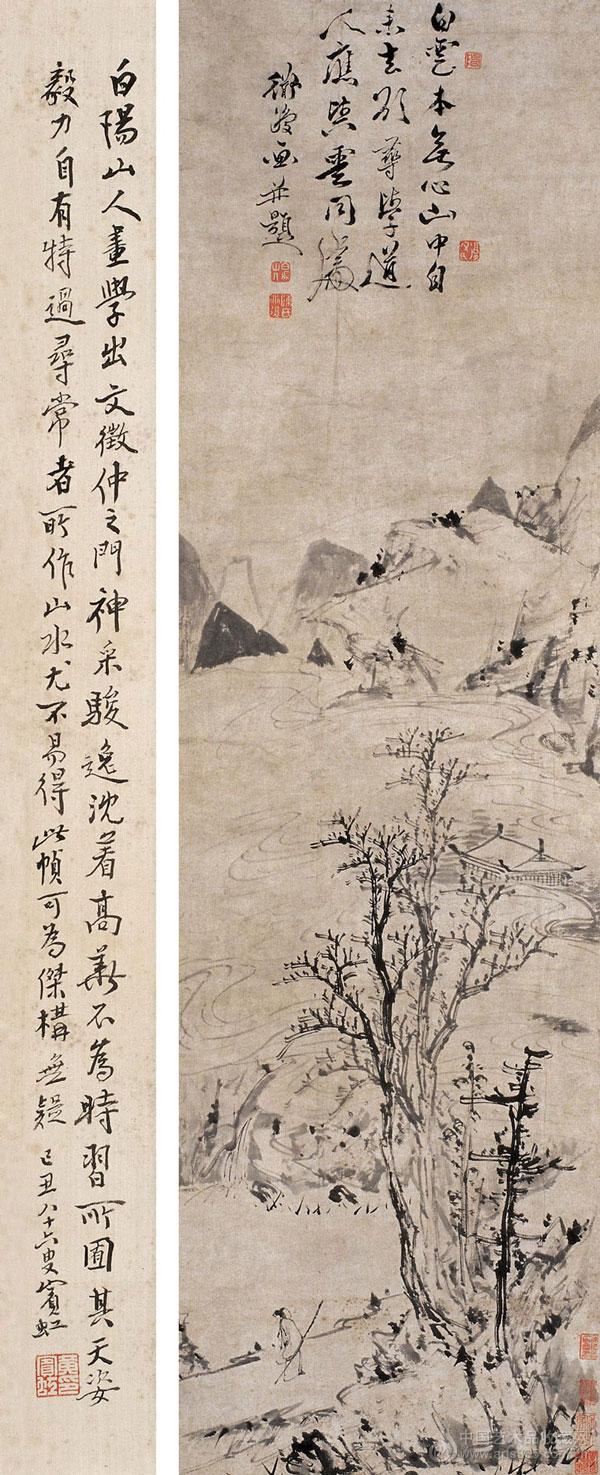 白雲本無心山中自
來去學道
人應與雲同
画并題
白陽山人畫學出文徵仲之門神采駿逸沈着高華不為時習所囿其天姿
毅力自有特過尋常者所作山水尤不易得此幀可為傑構無疑 己丑八十六叟賓虹